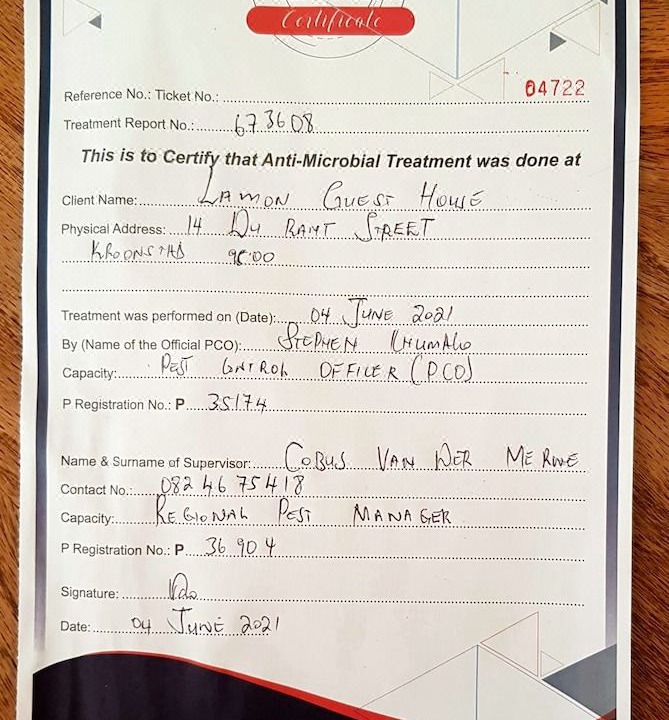 Certificate
04722
Reference No.: Ticket No.:
Treatment Report No.: 673608
This is to Certify that Anti-Microbial Treatment was done at
Client Name: LAMON GUEST HOUSE
Physical Address: 14 DU RANT STREET
KROONSTAD
Treatment was performed on (Date): 04 JUNE 2021
By (Name of the Official PCO): STEPHEN KHUMALO
Capacity: PEST CONTROL OFFICER (PCO)
P Registration No.: P 35174
Name & Surname of Supervisor: COBUS VAN DER MERWE
Contact No.: 082 46 75418
Capacity: REGIONAL PEST MANAGER
P Registration No.: P 36904
Signature:
Date: 04 JUNE 2021